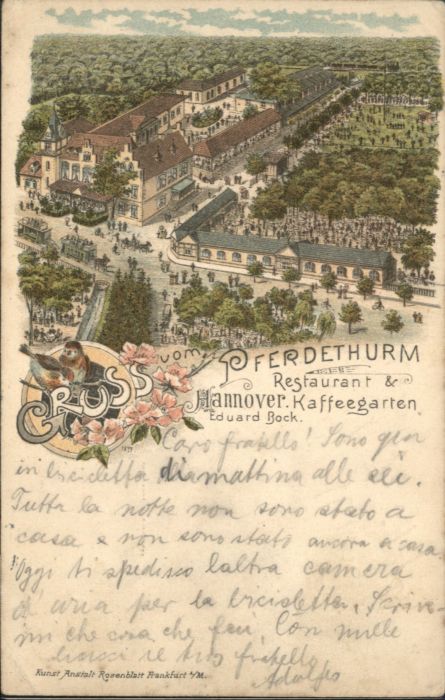 GRUSS vom PFERDETHURM
Restaurant &
Hannover. Kaffeegarten
Eduard Bock.
Caro fratello! Sono gia
in bicicletta diamattina alle sei.
Tutta la notte non sono stato a
casa e non sono stato ancora a casa
Oggi ti spedisco laltra camera
d'aria per la bicicletta. Scrive
mi che cosa che fai, Con mille
baci il tuo fratello
Adolfo
Kunst Anstalt Rosenblatt Frankfurt a/M.